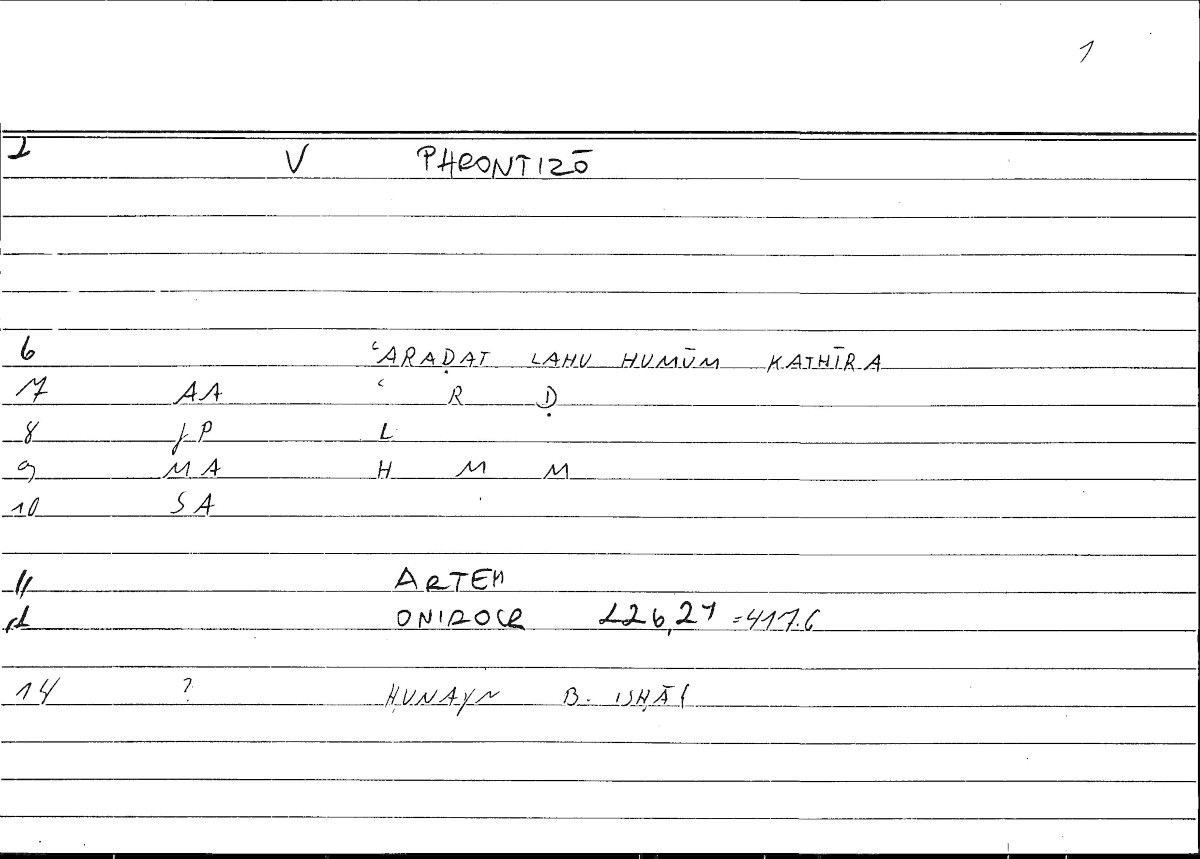 1
1 V PHRONTIZŌ
6 ʿARAḌAT LAHU HUMŪM KATHĪRA
7 AA ʿ R Ḍ
8 JP L
9 MA H M M
10 SA
11 ARTEM
12 ONIROCR 226,21 =417.6
14 ? ḤUNAYN B. ISḤĀQ